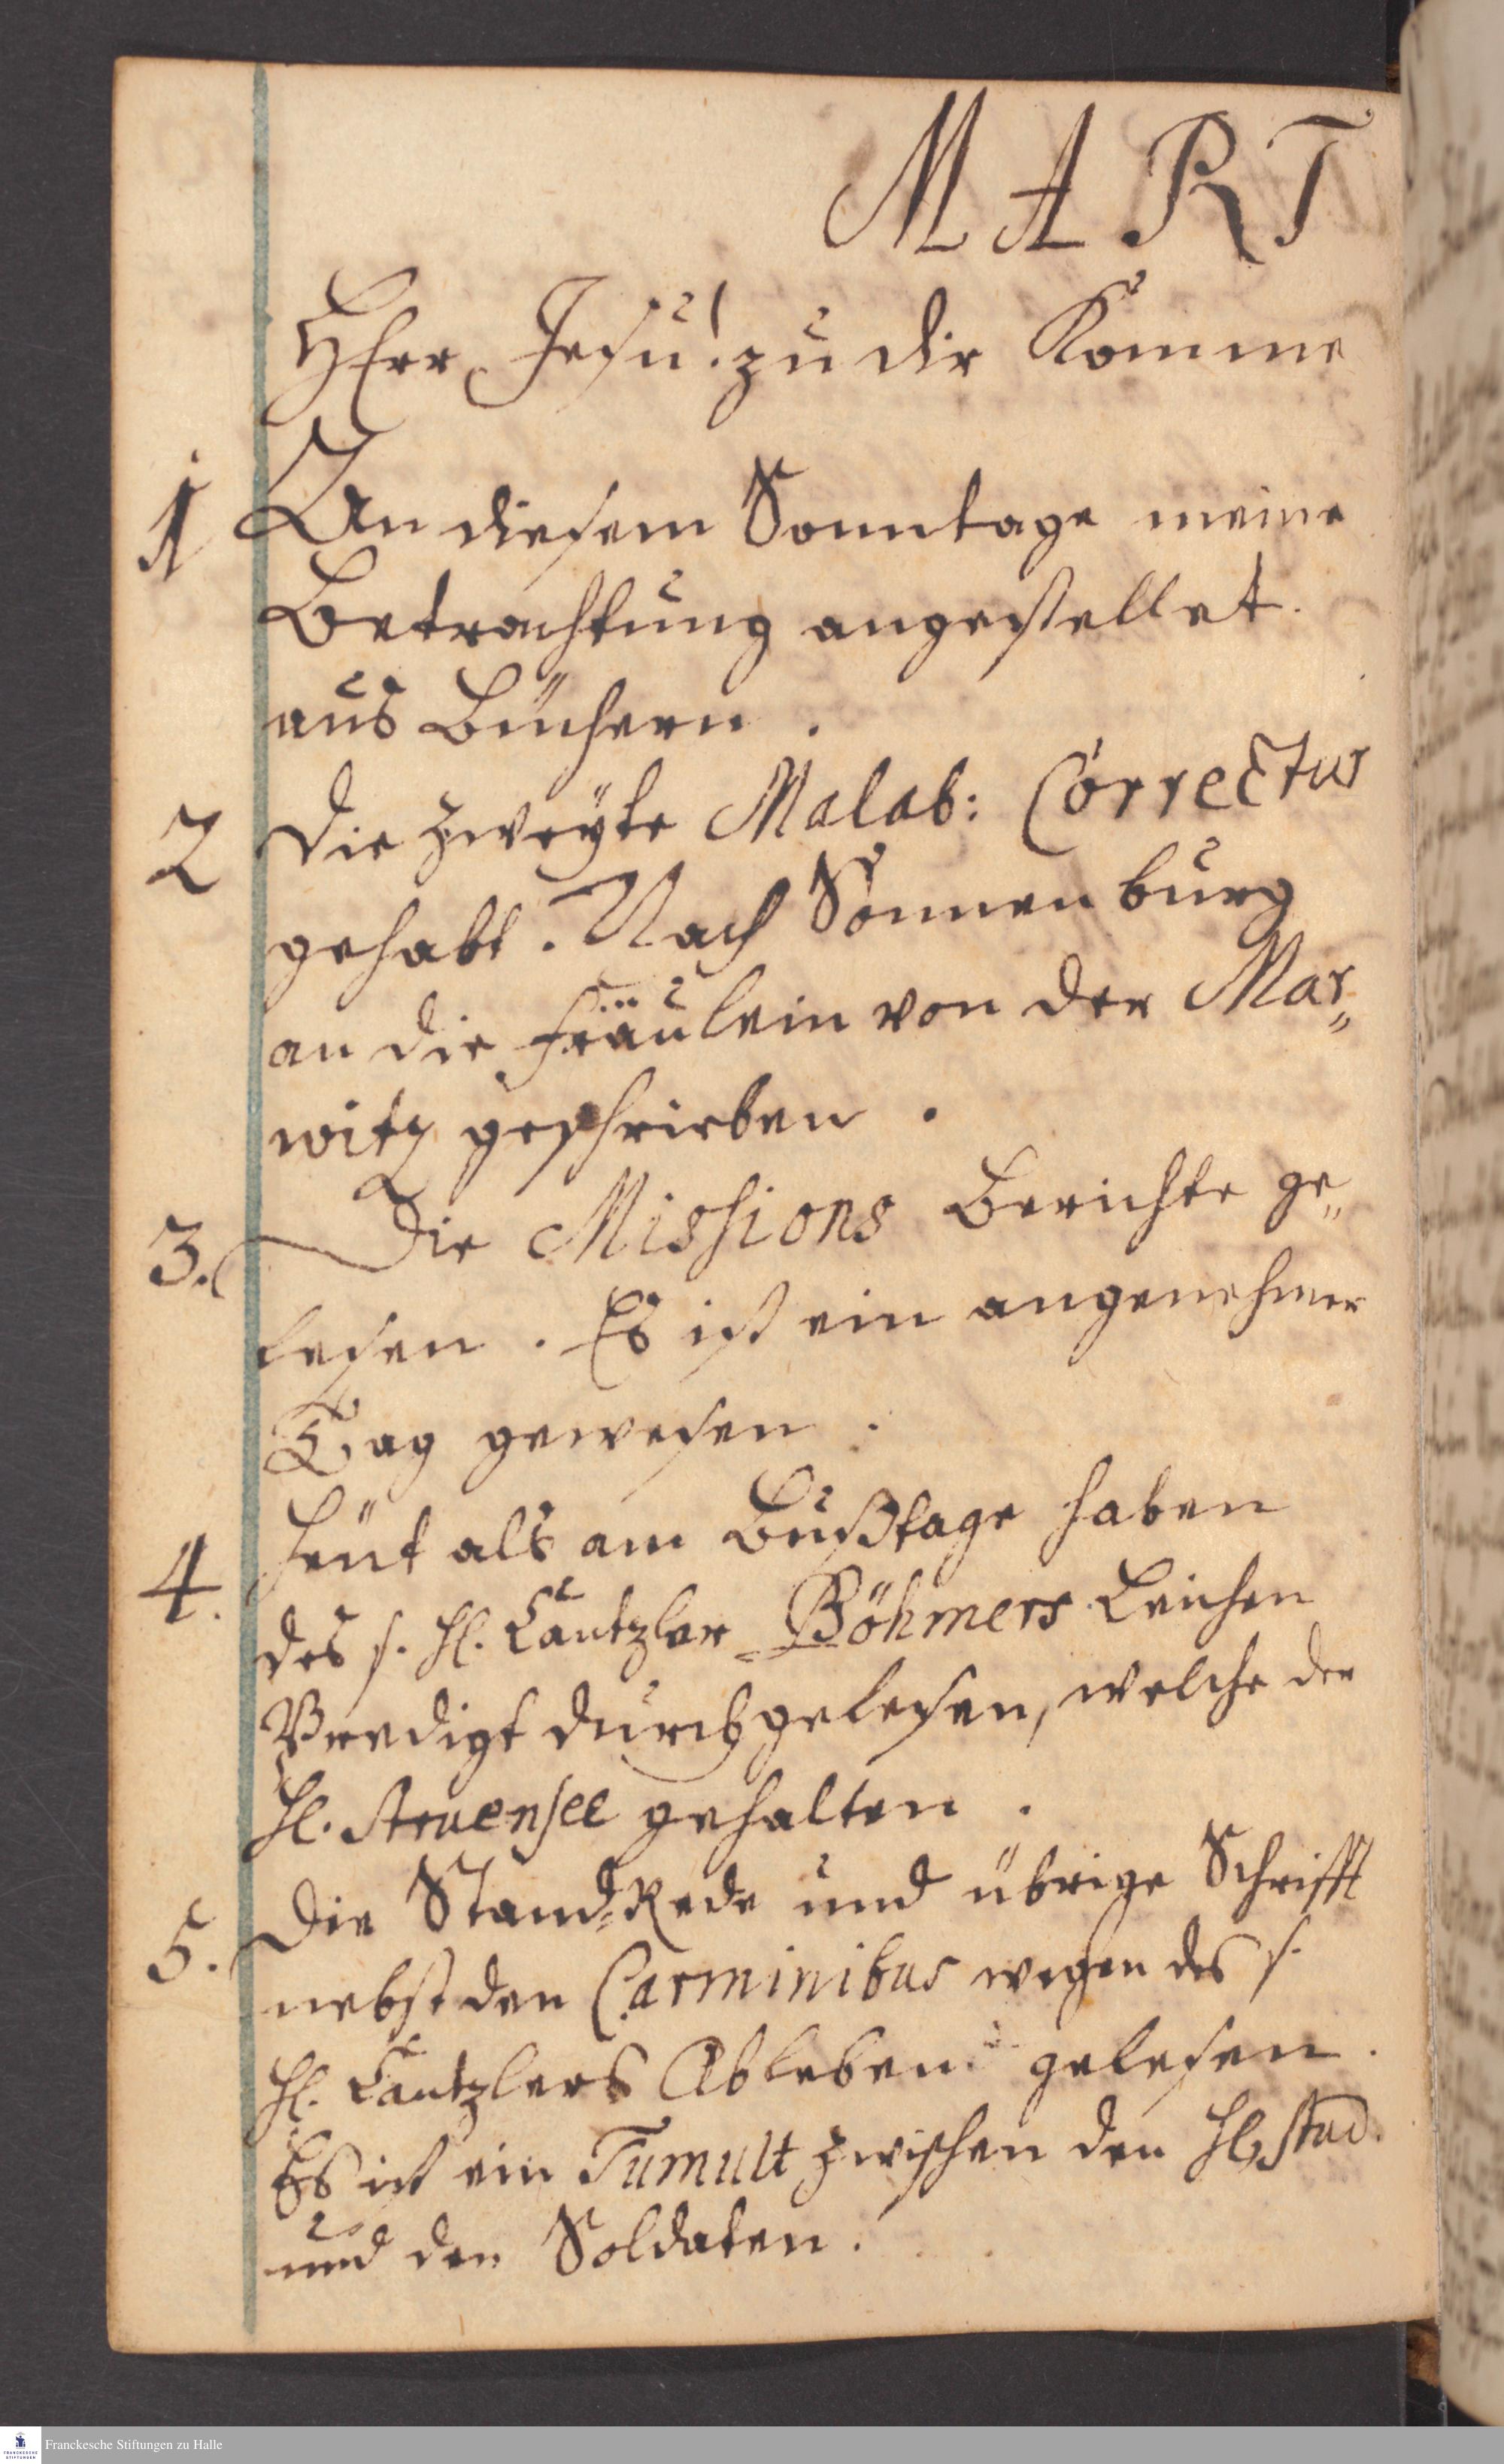 MART
HErr Jesu! zu dir Komme
1 An diesem Sonntage meine
Betrachtung angestellet.
aus Büchern.
2 Die zweÿte Malab: Correctur
gehabt. Nach Sonnenburg
an die Fräulein von der Mar„
witz geschrieben.
3. Die Missions Berichte ge„
lesen. Es ist ein angenehmer
Tag gewesen.
4. Heut als am Bußtage haben
des s. H. Cantzler Böhmers Leichen
Predigt durchgelesen, welche der
H. Struensee gehalten.
5. Die Stand-Rede und übrige Schrifft
nebst den Carminibus wegen des s.
H. Cantzlers Ableben gelesen.
Es ist ein Tumult zwischen den H. Stud.
und den Soldaten.
Franckesche Stiftungen zu Halle
FRANCKESCHE
STIFTUNGEN